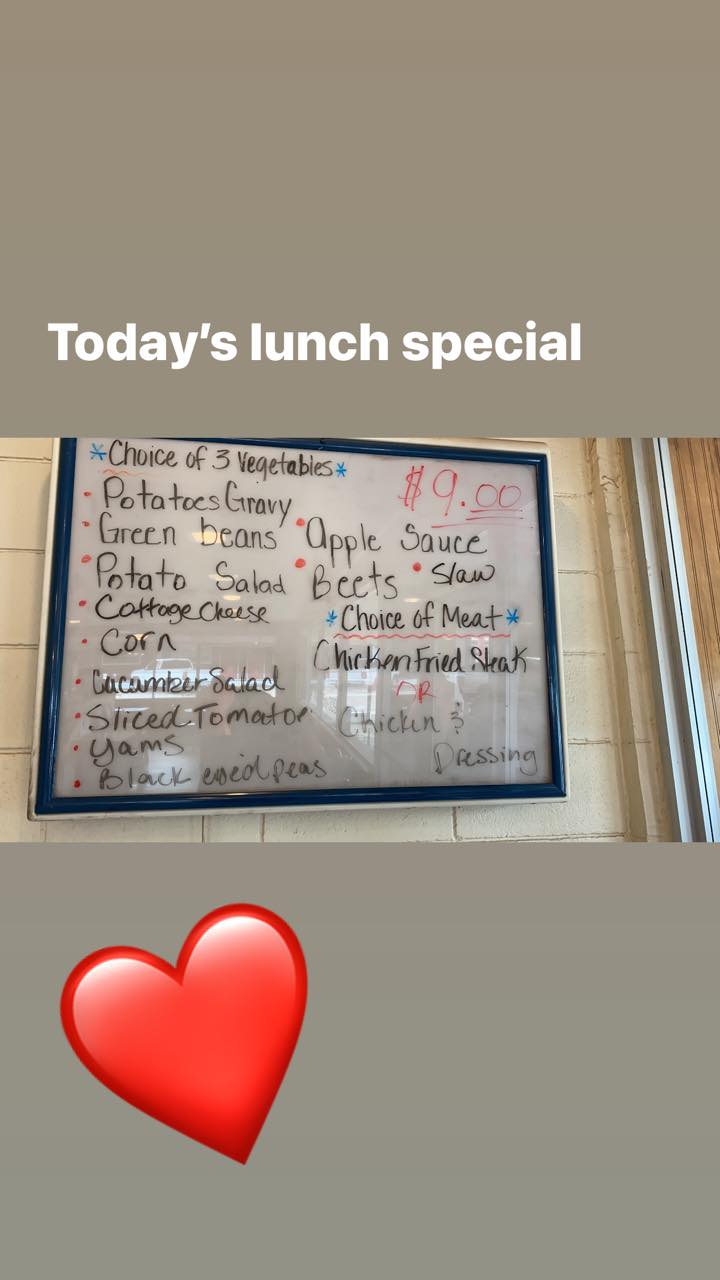 Today's lunch special
*Choice of 3 Vegetables*
$9.00
• Potatoes Gravy
• Green beans
• Apple Sauce
• Potato Salad
• Beets • Slaw
• Cottage Cheese
*Choice of Meat*
• Corn
Chicken Fried Steak
• Cucumber Salad
OR
• Sliced Tomatoe
Chicken &
• Yams
Dressing
• Black eyed peas